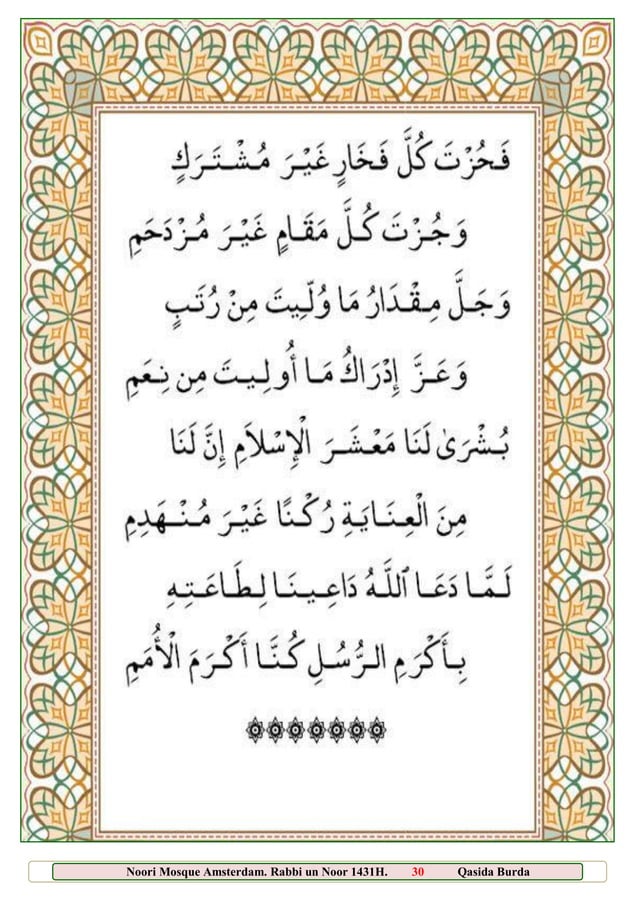 فَحُزْتَ كُلَّ فَخَارٍ غَيْرَ مُشْتَرَكٍ
وَجُزْتَ كُلَّ مَقَامٍ غَيْرَ مُزْدَحَمِ
وَجَلَّ مِقْدَارُ مَا وُلِّيتَ مِنْ رُتَبٍ
وَعَزَّ إِدْرَاكُ مَا أُولِيتَ مِن نِعَمِ
بُشْرَىٰ لَنَا مَعْشَرَ الْإِسْلَامِ إِنَّ لَنَا
مِنَ الْعِنَايَةِ رُكْنًا غَيْرَ مُنْهَدِمِ
لَمَّا دَعَا ٱللَّهُ دَاعِينَا لِطَاعَتِهِ
بِأَكْرَمِ الرُّسُلِ كُنَّا أَكْرَمَ الْأُمَمِ
Noori Mosque Amsterdam. Rabbi un Noor 1431H. 30 Qasida Burda